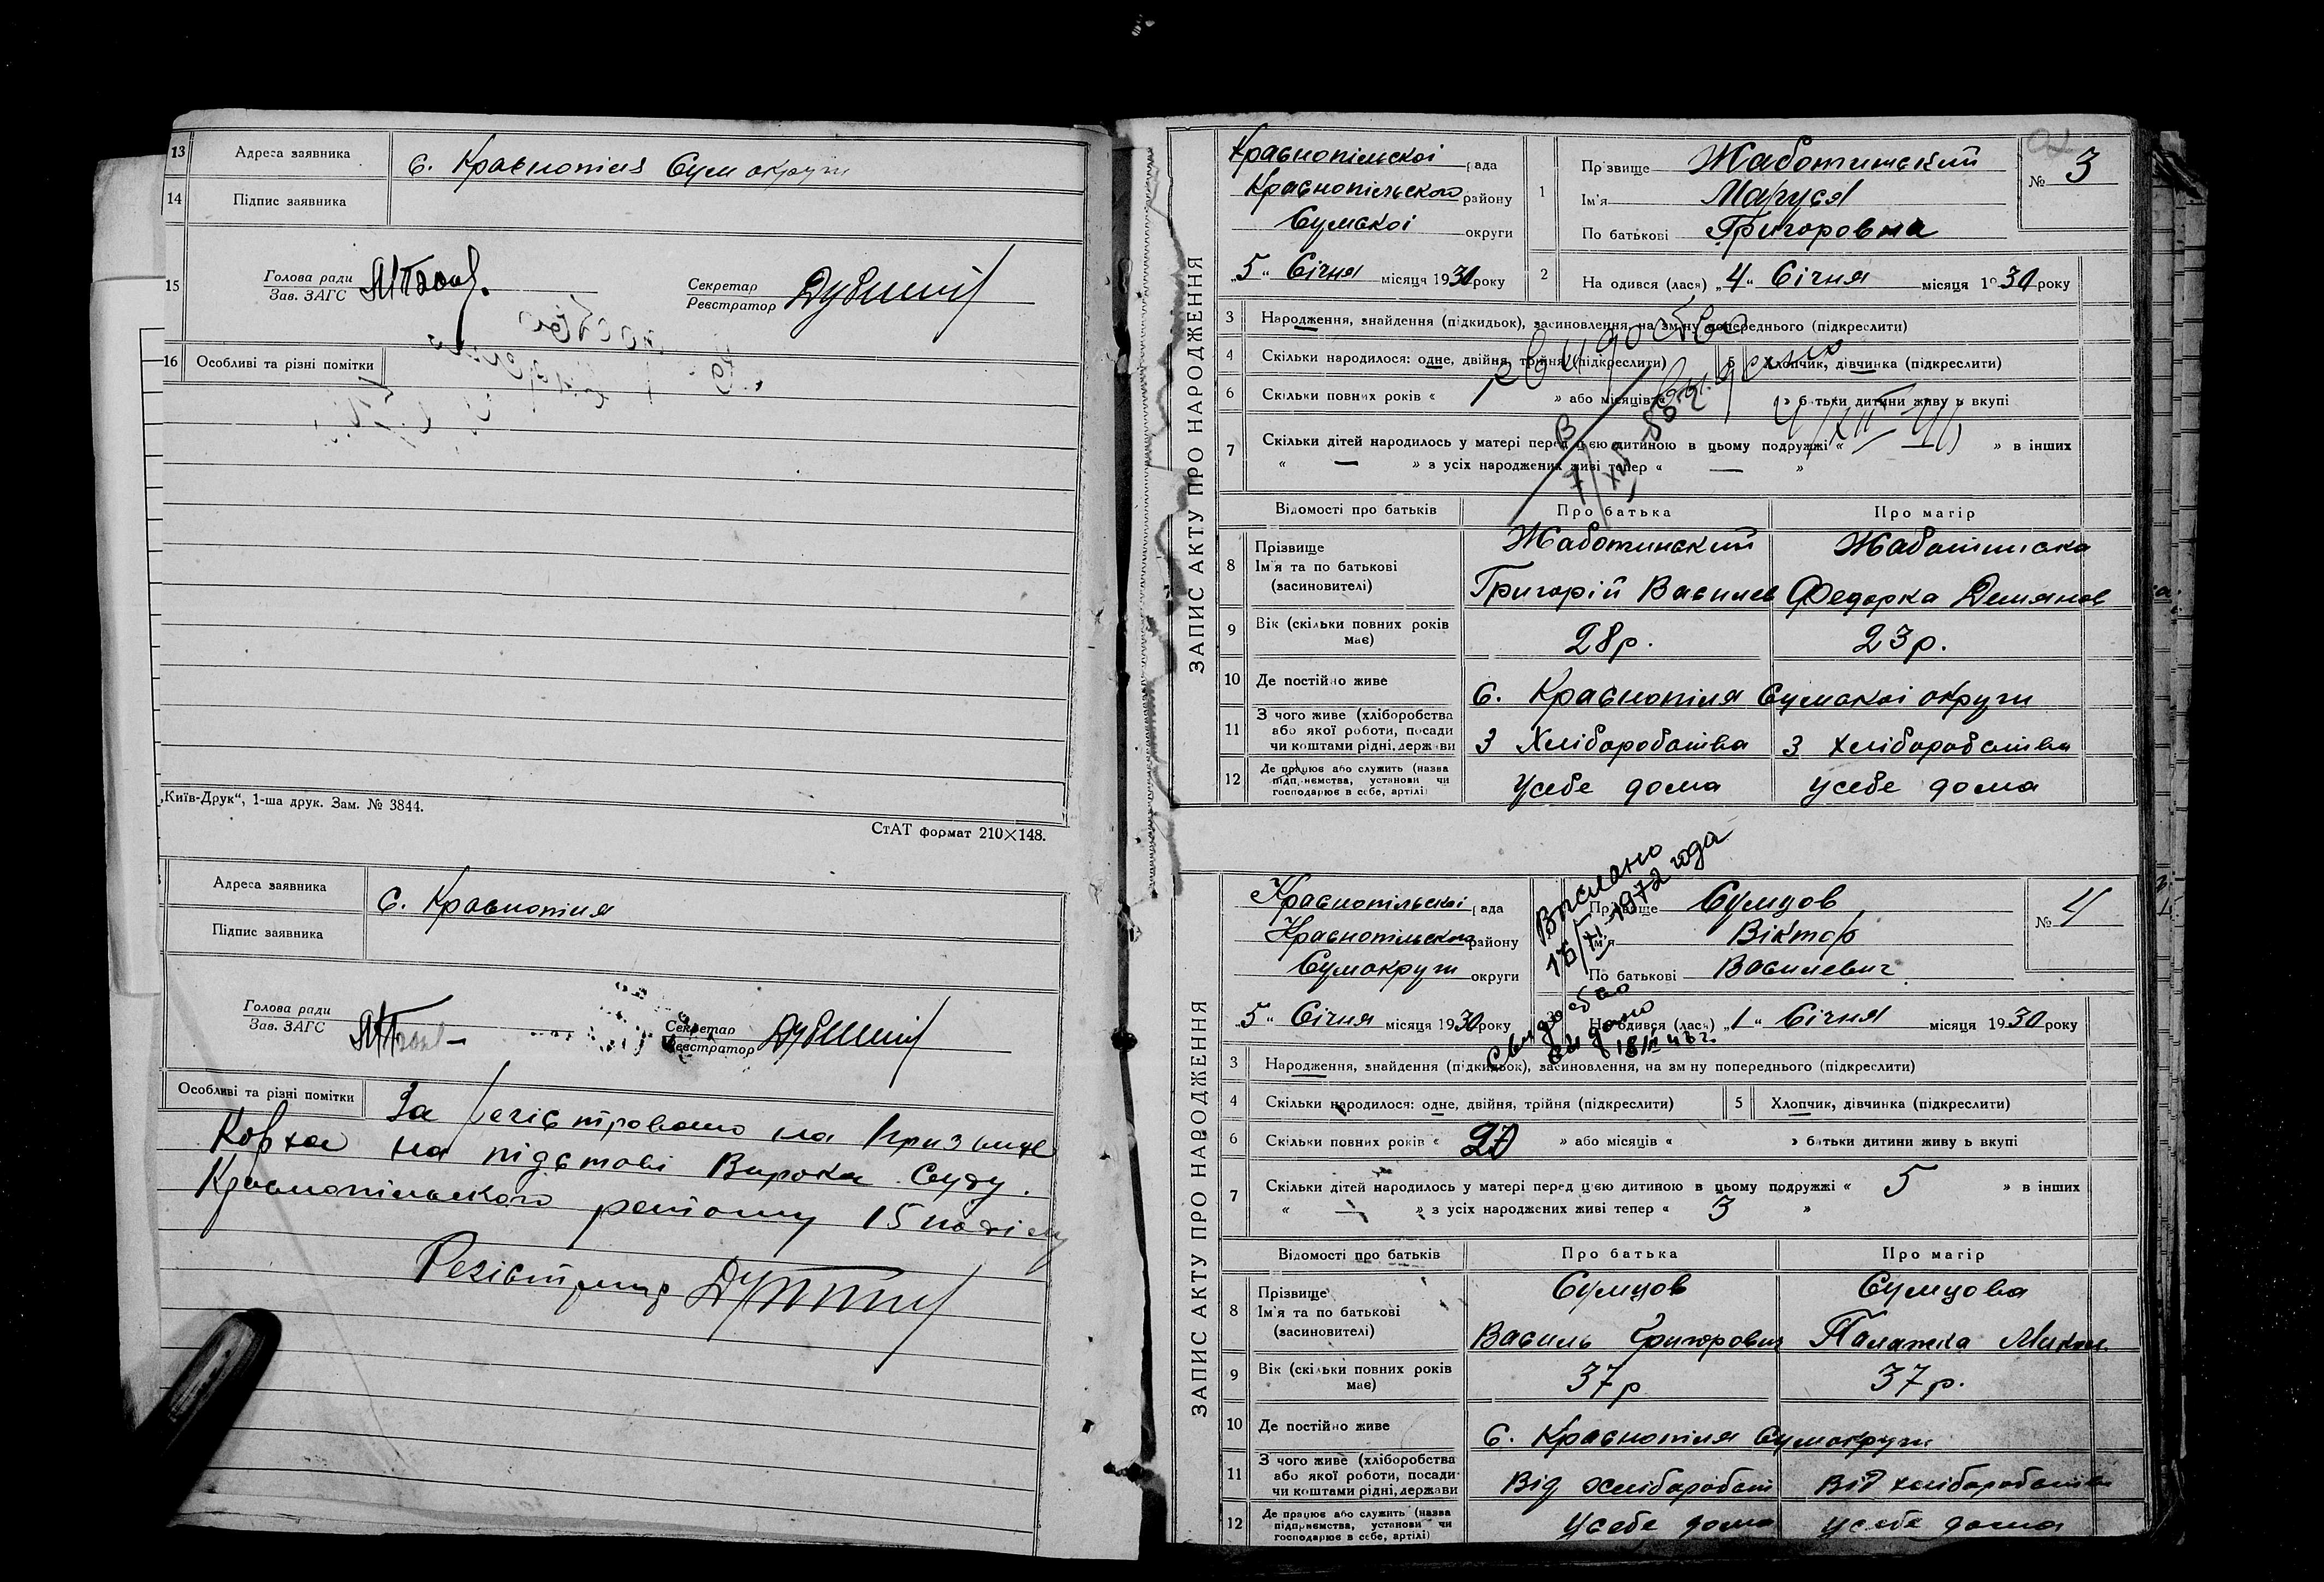 13 Адреса заявника с. Краснопіля Сум округи
14 Підпис заявника
15 Голова ради
Зав. ЗАГС
Секретар
Реєстратор
16 Особливі та різні помітки
„Київ-Друк“, 1-ша друк. Зам. № 3844.
СтАТ формат 210×148.
Адреса заявника с. Краснопіля
Підпис заявника
Голова ради
Зав. ЗАГС
Секретар
Реєстратор
Особливі та різні помітки За регістровано на Призвище
Ковха на підставі Вирока Суду
Краснопільского
Регістратор
ЗАПИС АКТУ ПРО НАРОДЖЕННЯ
Краснопільскоі рада
Краснопільского району
Сумскоі округи
„5“ Січня місяця 1930 року
1 Прізвище Жаботинський
Ім'я Маруся
По батькові Григоровна
№ 3
2 На одився (лася) „4“ Січня місяця 1930 року
3 Народження, знайдення (підкидьок), засиновлення, на зміну попереднього (підкреслити)
4 Скільки народилося: одне, двійня, трійня (підкреслити) 5 Хлопчик, дівчинка (підкреслити)
6 Скільки повних років « » або місяців « » батьки дитини живуть вкупі
7 Скільки дітей народилось у матері перед цією дитиною в цьому подружжі « — » в інших
« — » з усіх народжених живі тепер « — »
Відомості про батьків Про батька Про матір
8 Прізвище Жаботинский Жаботинска
Ім'я та по батькові
(засиновителі) Григорій Васильев Федорка Демянов
9 Вік (скільки повних років має) 28р. 23р.
10 Де постійно живе с. Краснопіля Сумскоі округи
11 З чого живе (хліборобства
або якої роботи, посади
чи коштами рідні, держави З Хліборобства З хліборобства
12 Де працює або служить (назва
підприємства, установи чи
господарює в себе, артілі) усебе дома усебе дома
Выслано
1972 года
ЗАПИС АКТУ ПРО НАРОДЖЕННЯ
Краснопільскоі рада
Краснопільского району
Сумокруги округи
„5“ Січня місяця 1930 року
Прізвище Сумцов
Ім'я Віктор
По батькові Василевич
№ 4
На одився (лася) „1“ Січня місяця 1930 року
3 Народження, знайдення (підкидьок), засиновлення, на зміну попереднього (підкреслити)
4 Скільки народилося: одне, двійня, трійня (підкреслити) 5 Хлопчик, дівчинка (підкреслити)
6 Скільки повних років « 20 » або місяців « » батьки дитини живуть вкупі
7 Скільки дітей народилось у матері перед цією дитиною в цьому подружжі « 5 » в інших
« — » з усіх народжених живі тепер « 3 »
Відомості про батьків Про батька Про матір
8 Прізвище Сумцов Сумцова
Ім'я та по батькові
(засиновителі) Василь Григорович Палажка Микол.
9 Вік (скільки повних років має) 37р 37р.
10 Де постійно живе с. Краснопіля Сумокруги
11 З чого живе (хліборобства
або якої роботи, посади
чи коштами рідні, держави Від хліборобст Від хліборобства
12 Де працює або служить (назва
підприємства, установи чи
господарює в себе, артілі) усебе дома усебе дома